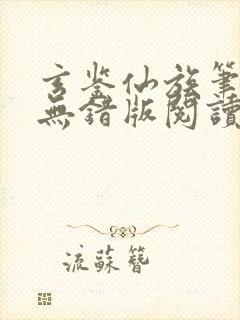 玄鉴仙族筆
無錯版閱讀
流蘇簪